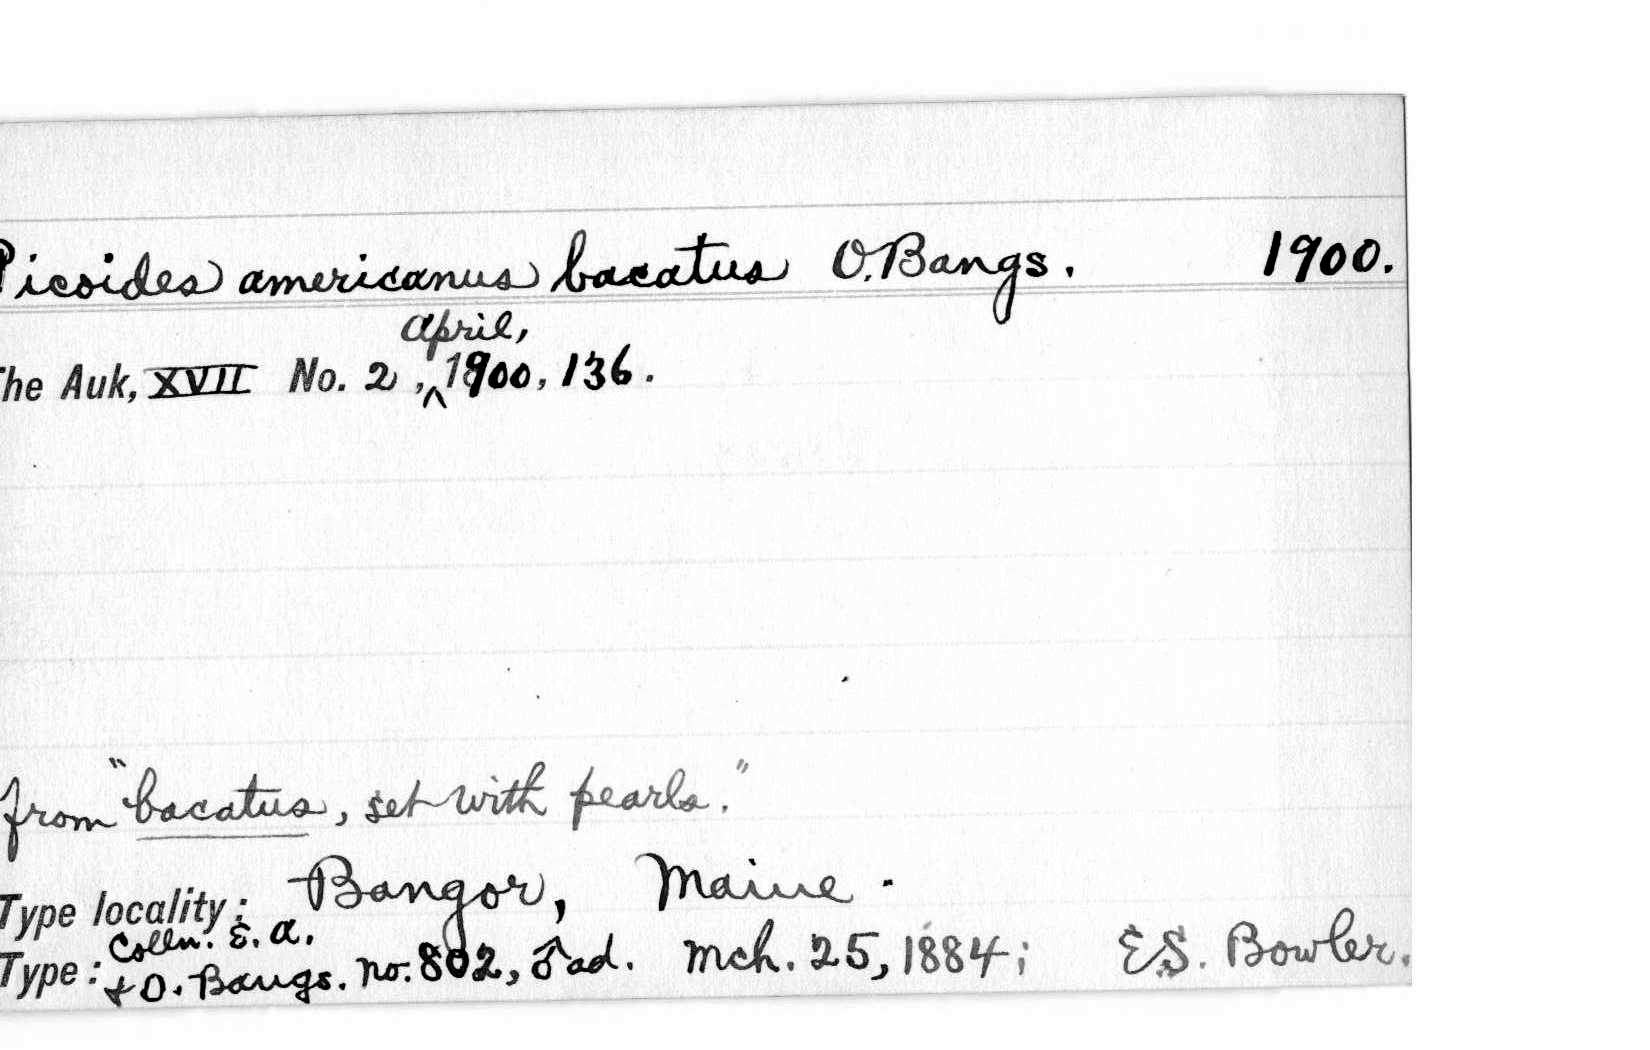 Picoides americanus bacatus O. Bangs. 1900.
April,
The Auk, XVII No. 2, ^ 1900, 136.
from "bacatus, set with pearls."
Type locality: Bangor, Maine.
Colln. E. A.
Type: & O. Bangs. No. 802, ♂ ad. Mch. 25, 1884; E.S. Bowler.